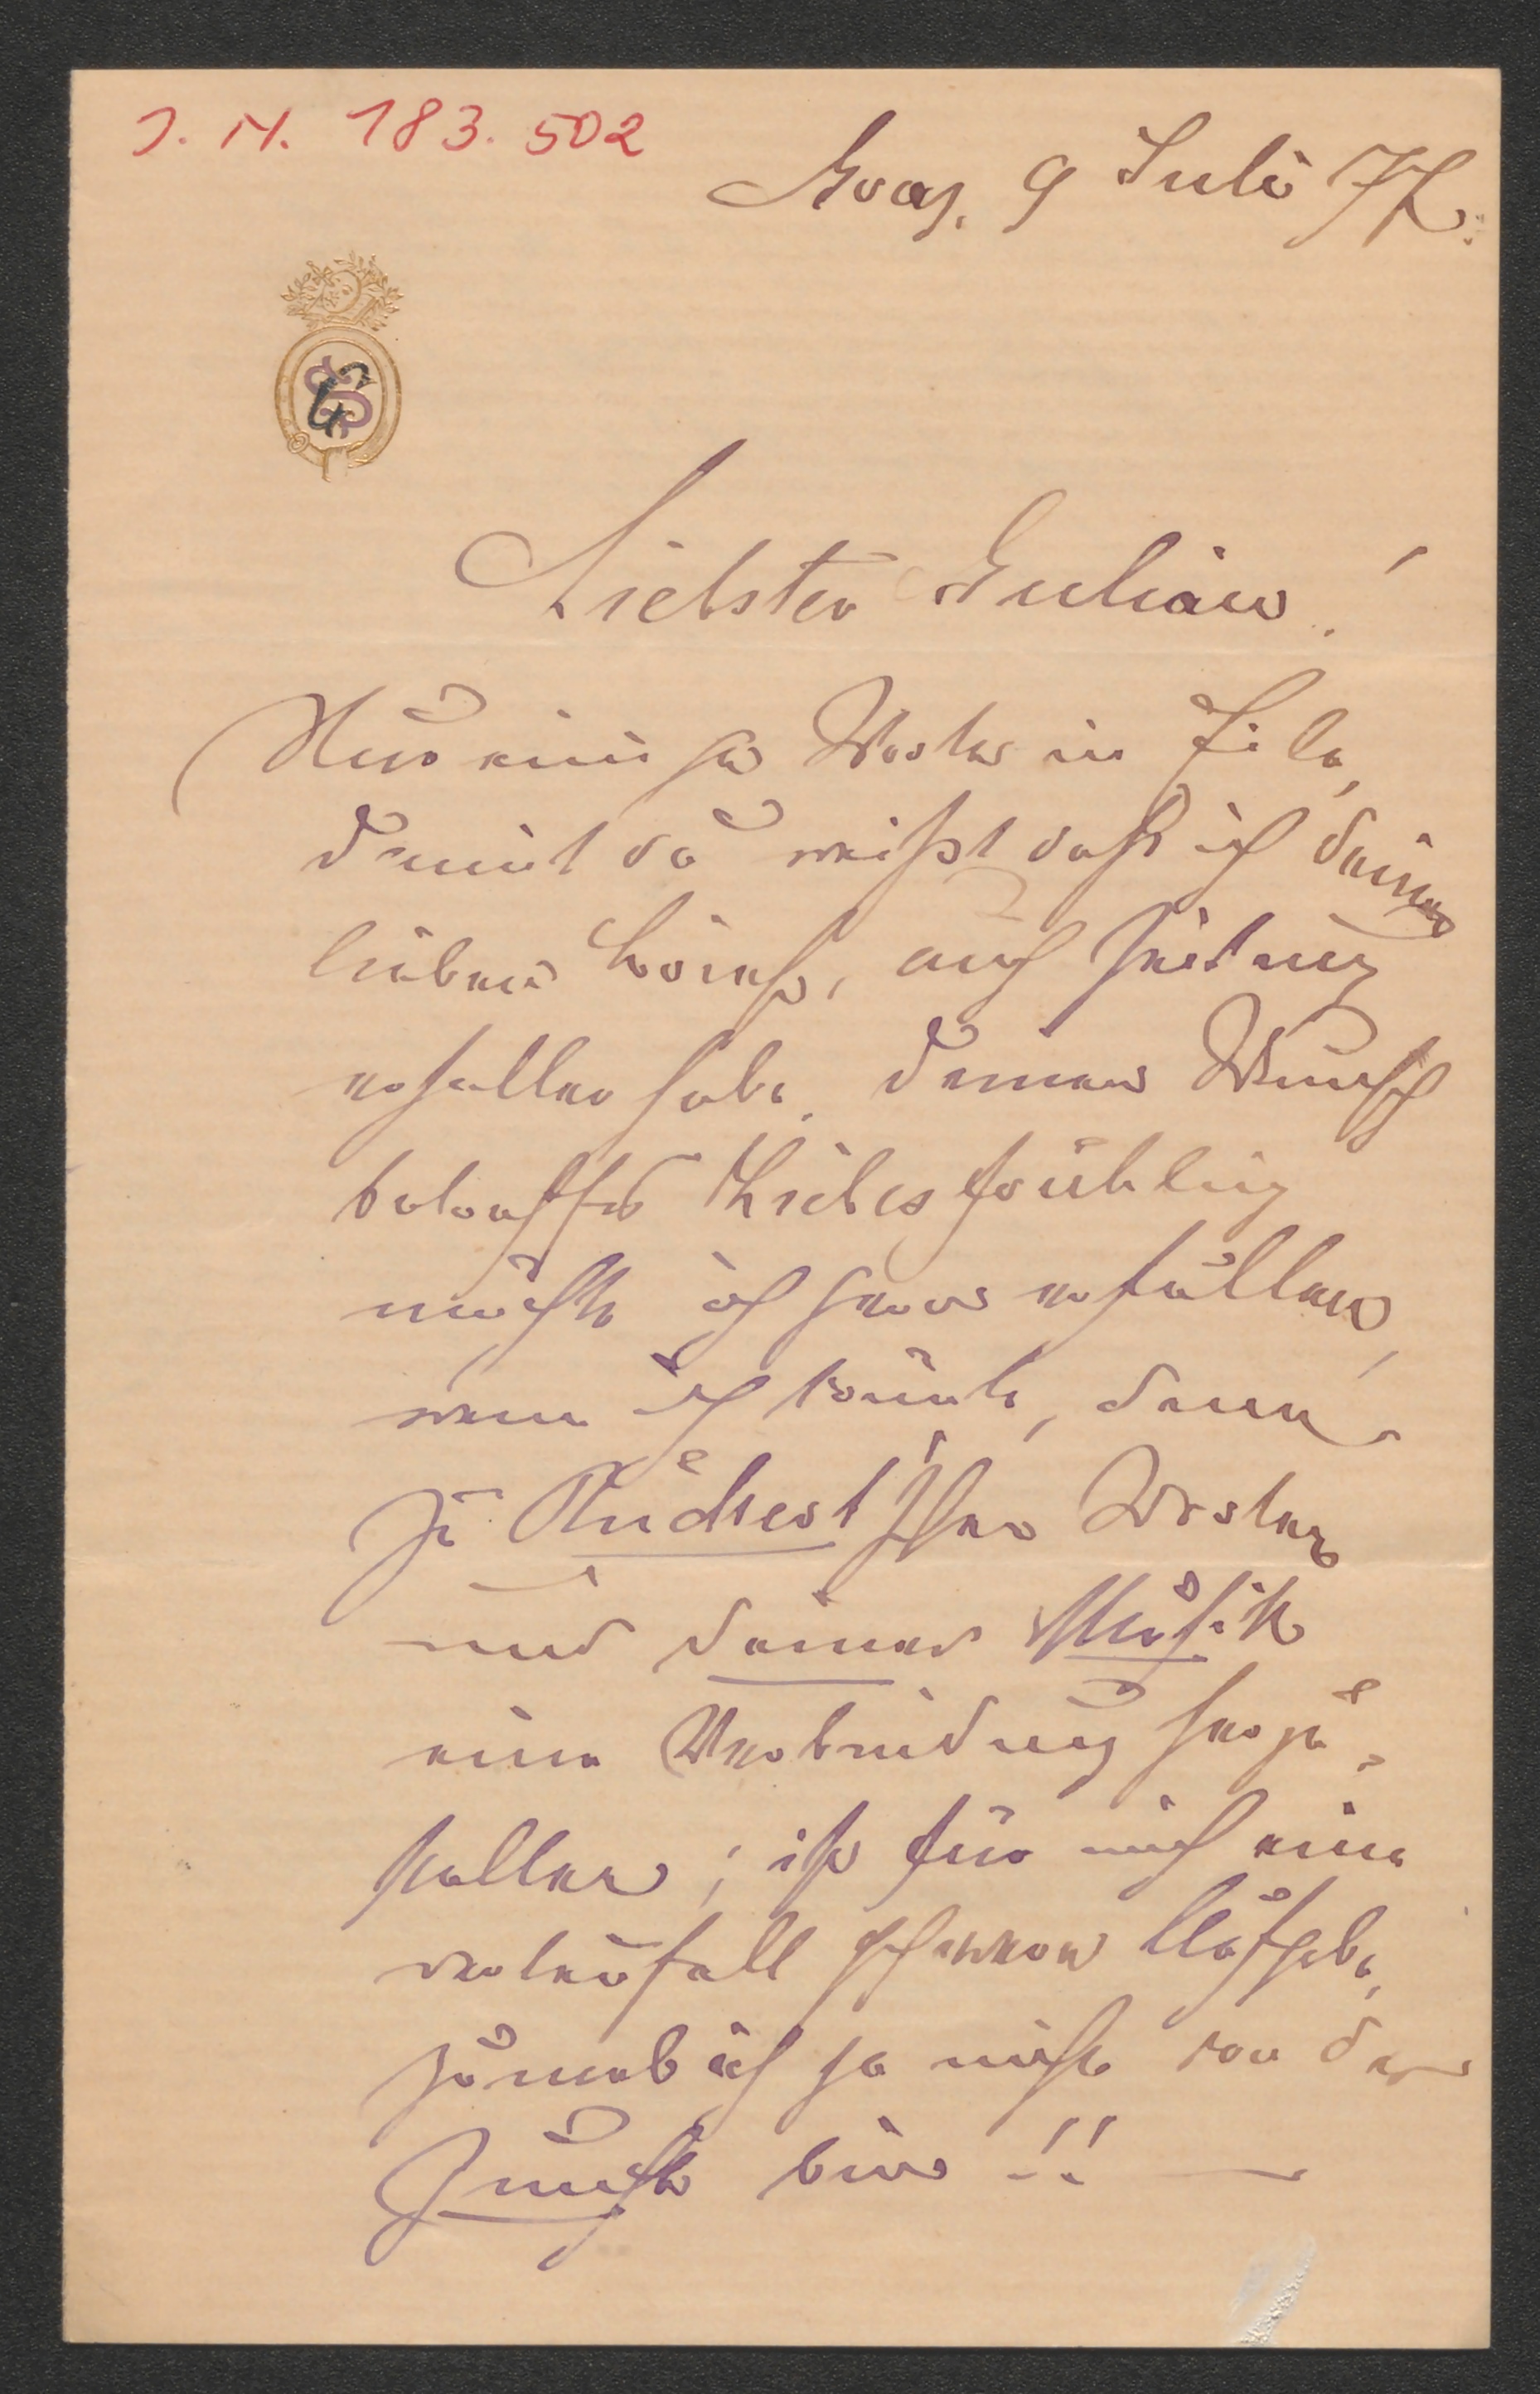 J. N. 183.502
Graz, 9 Juli 77.
Liebster Julian!
Nur einige Worte in Eile,
damit du weißt daß ich deinen
lieben Brief, auch Zeitung
erhalten habe. Deinen Wunsch
betreffs Liebesfrühling
möchte ich gern erfüllen,
wenn ich könnte, denn
zu Rückert'schen Worten
und deiner Musik
eine Verbindung herzu-
stellen; ist für mich eine
schwere Aufgabe,
zumal ich ja nicht von der
Zunft bin!! —